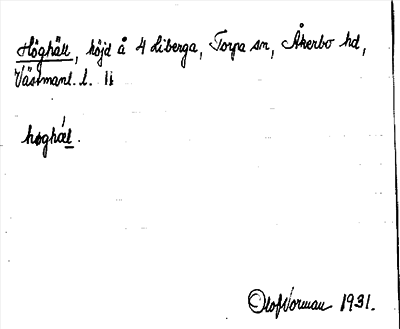 Höghäll, höjd å 4 Liberga, Torpa sn, Åkerbo hd,
Västmanl. l. 11
høghǽl.
Olof Norman 1931.